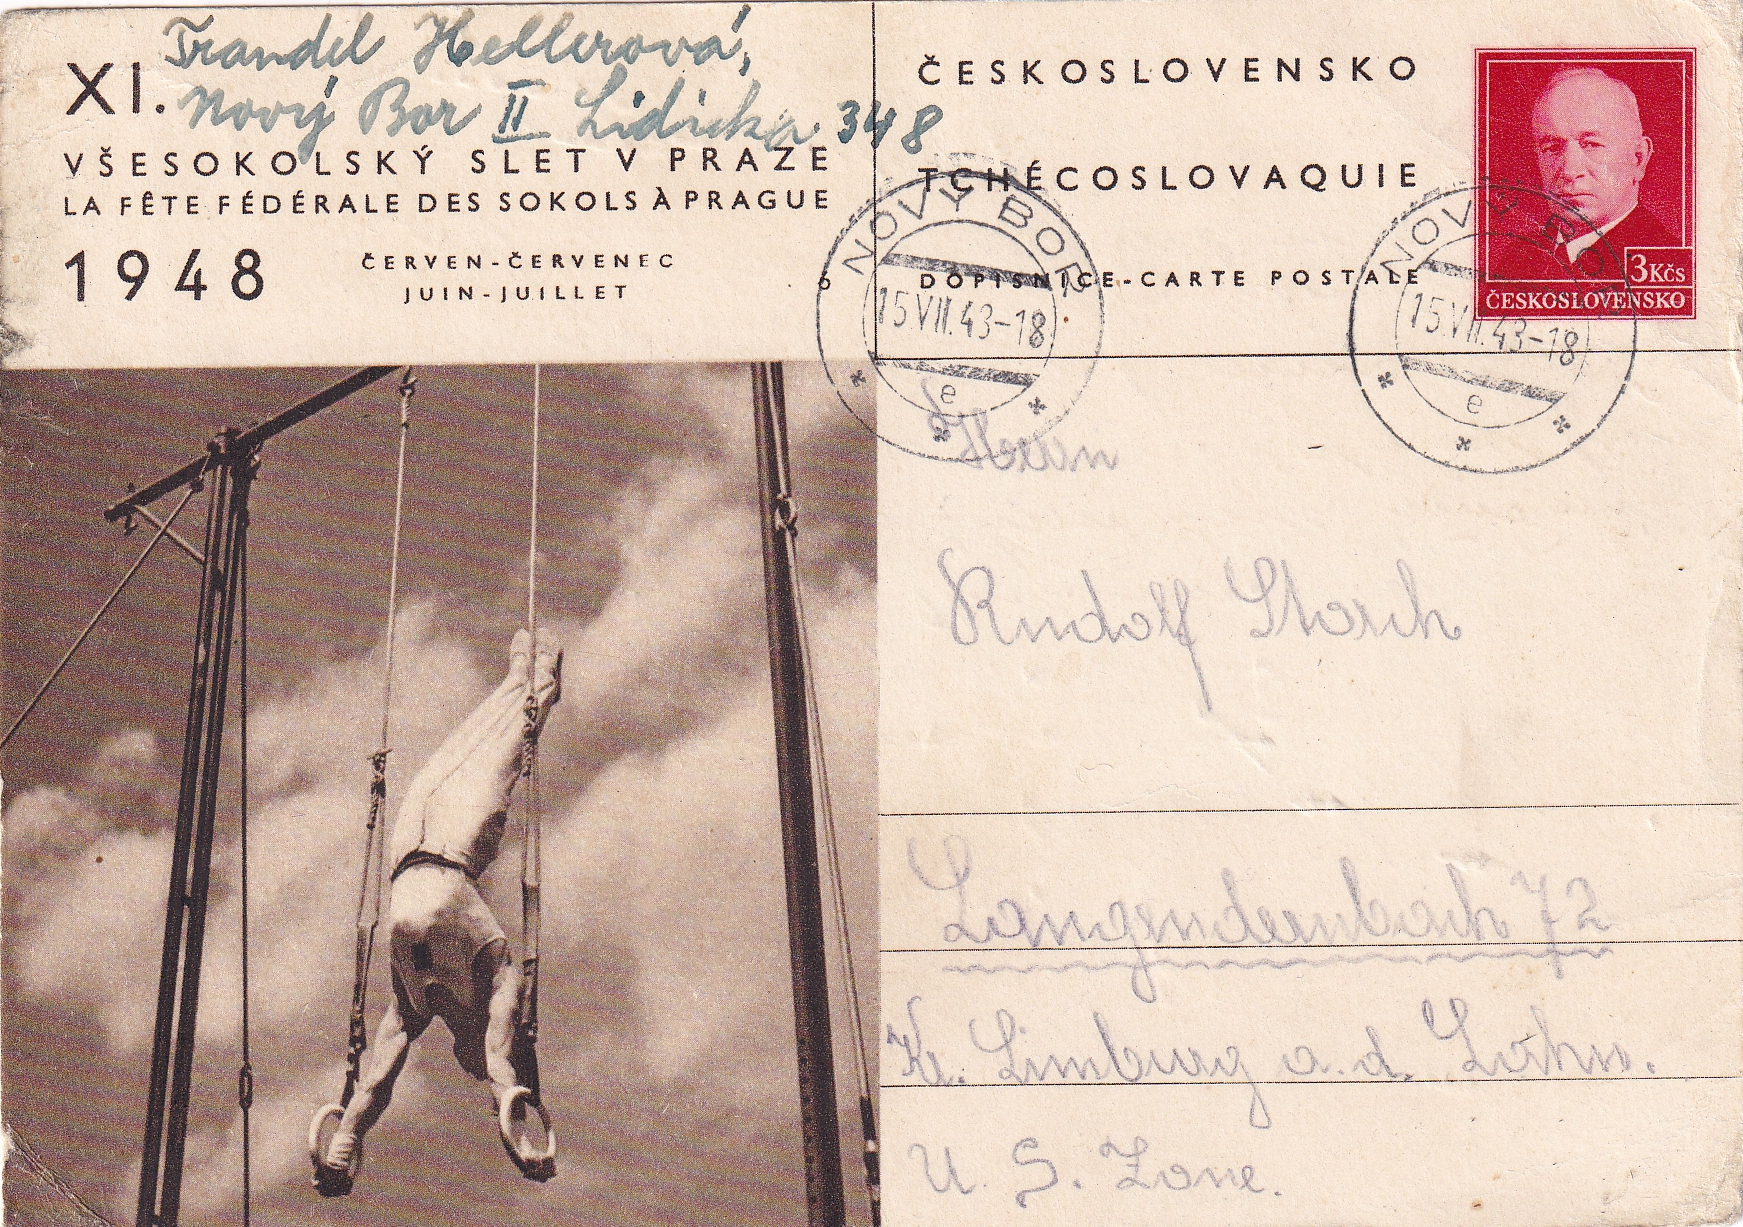 Trandel Hellerová,
Nový Bor II Lidicka 348
XI.
VŠESOKOLSKÝ SLET V PRAZE
LA FÊTE FÉDÉRALE DES SOKOLS À PRAGUE
1948
ČERVEN-ČERVENEC
JUIN-JUILLET
ČESKOSLOVENSKO
TCHÉCOSLOVAQUIE
DOPISNICE-CARTE POSTALE
3Kčs
ČESKOSLOVENSKO
NOVÝ BOR
15.VII.43-18
e
NOVÝ BOR
15.VII.43-18
e
Herrn
Rudolf Storch
Langendernbach 72
Kr. Limburg a. d. Lahn.
U. S. Zone.